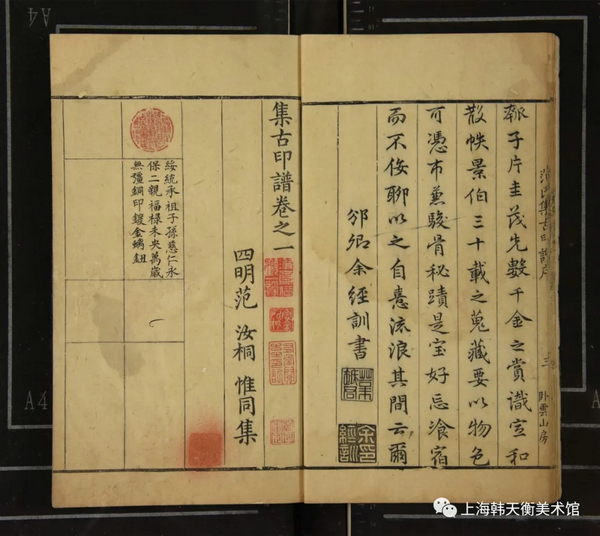 集古印譜序
三
卧雲山房
子片圭茂先數千金之賞識宣和
散帙景伯三十載之蒐藏要以物色
可憑市兼駿骨秘蹟是宝好忌飡宿
而不侫聊以之自憙流浪其間云爾
邠卿余經訓書
余印經訓
集古印譜卷之一
四明范 汝桐 惟同集
綏統承祖子孫慈仁永
保二親福祿未央萬歲
無疆銅印鍍金螭鈕
A4
A4
上海韩天衡美术馆